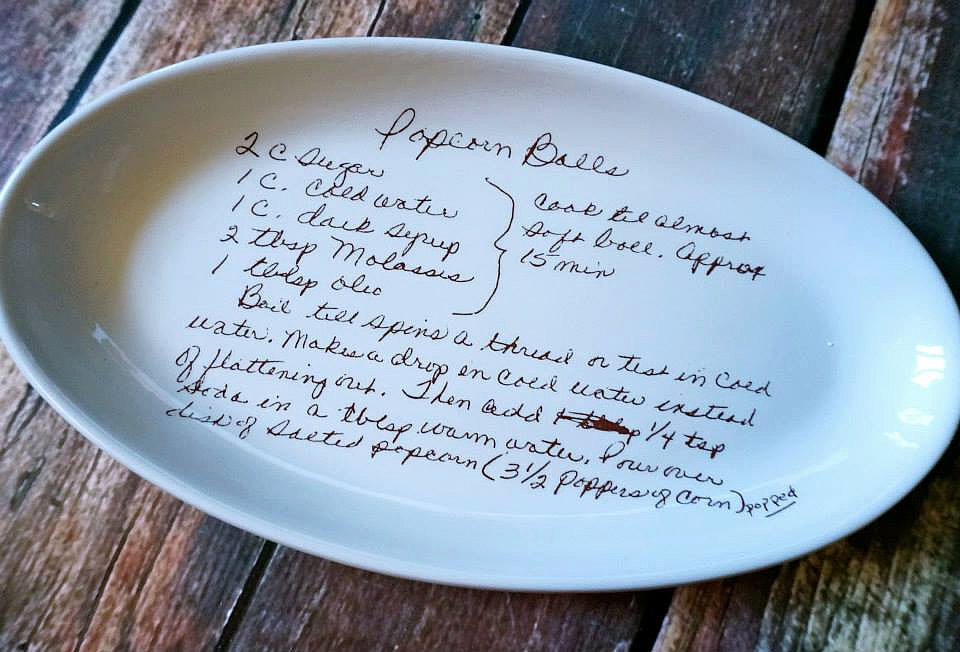 Popcorn Balls
2 C Sugar
1 C. Cold water
1 C. dark syrup
2 tbsp Molasses
1 tblsp oleo
Cook til almost
soft ball. Approx
15 min
Boil till spins a thread or test in cold
water. Makes a drop in cold water instead
of flattening out. Then add 1/4 tsp
soda in a tblsp warm water. Pour over
dish of salted popcorn (3 1/2 poppers of corn) popped